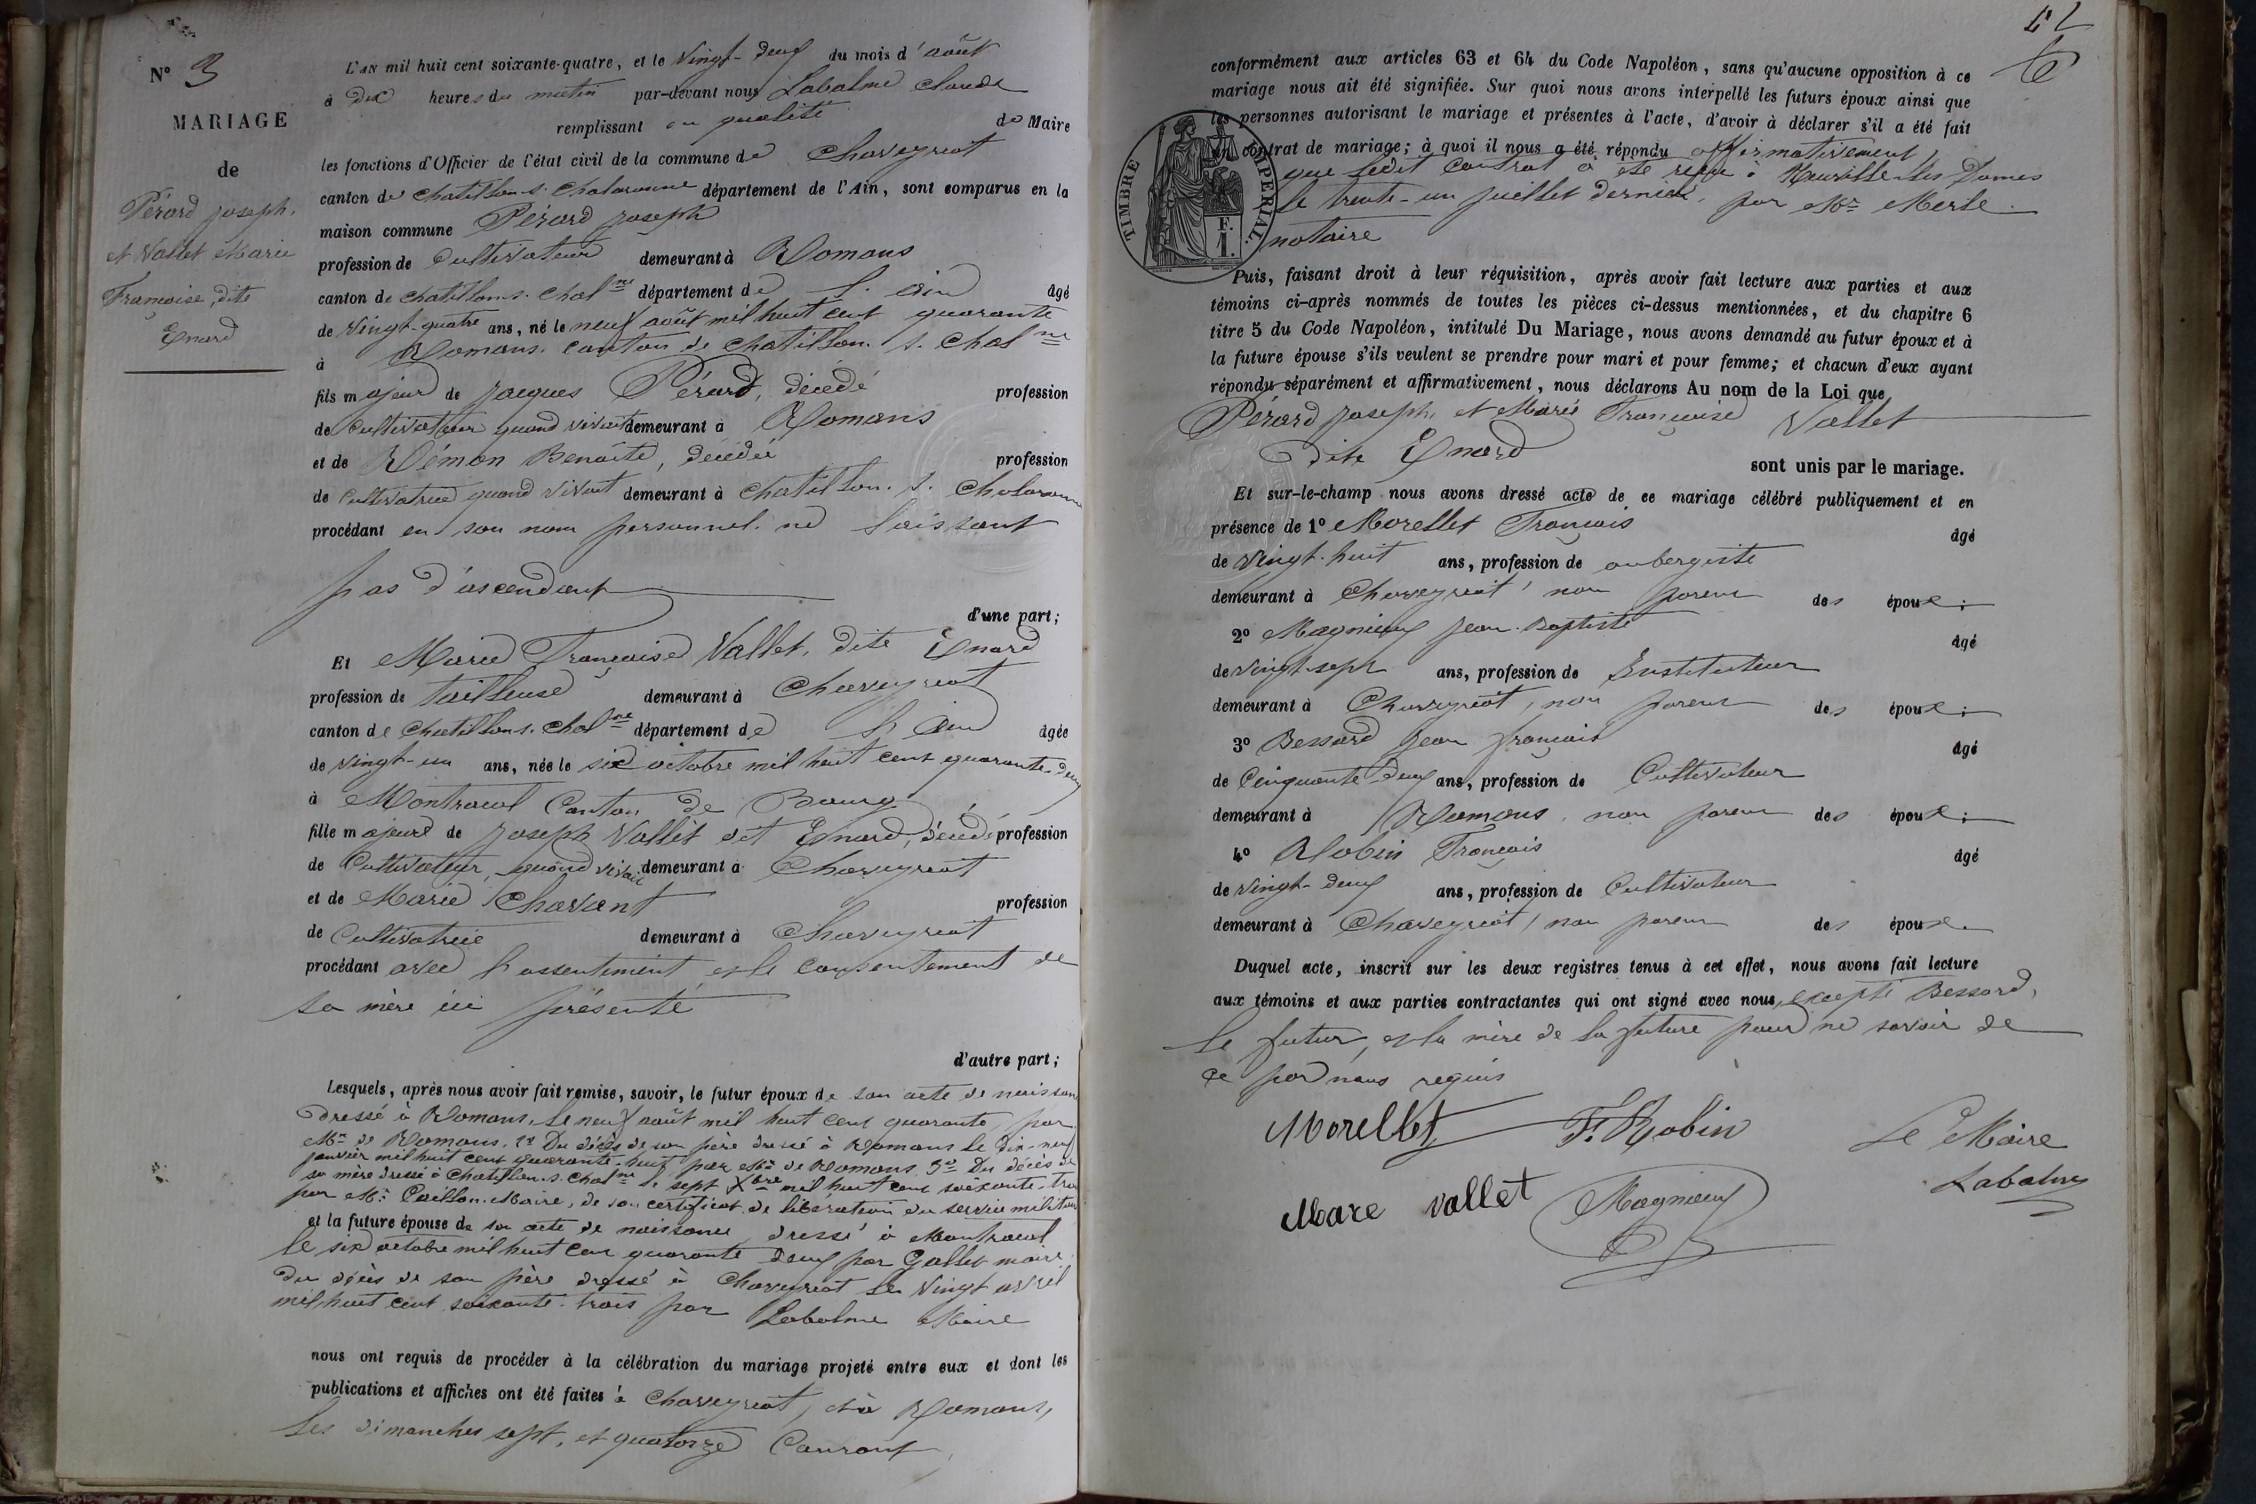 N° 3
MARIAGE
de
Pérard Joseph,
et Vallet Marie
Françoise, dite
Enard
L'AN mil huit cent soixante-quatre, et le vingt-deux du mois d'août
à dix heures du matin par-devant nous Labalme Claude
remplissant en qualité de Maire
les fonctions d'Officier de l'état civil de la commune de Chaveyriat
canton de Chatillon s. Chalaronne département de l'Ain, sont comparus en la
maison commune Pérard Joseph
profession de Cultivateur demeurant à Romans
canton de Chatillon s. Chalne département de l'ain âgé
de vingt-quatre ans, né le neuf août mil huit cent quarante
à Romans. canton de Chatillon. s. Chalne
fils majeur de Jacques Pérard, décédé profession
de Cultivateur quand vivait demeurant à Romans
et de Rémon Benoîte, décédée profession
de Cultivatrice quand vivait demeurant à Chatillon. s. Chalaronne
procédant en son nom personnel. ne laissant
pas d'ascendant
d'une part;
Et Marie Françoise Vallet, dite Enard
profession de tailleuse demeurant à Chaveyriat
canton de Chatillon s. Chalne département de l'Ain âgée
de vingt-un ans, née le six octobre mil huit cent quarante-deux
à Montracol Canton de Bourg
fille majeure de Joseph Vallet dit Enard, décédé profession
de Cultivateur, quand vivait demeurant à Chaveyriat
et de Marie Chavant profession
de Cultivatrice demeurant à Chaveyriat
procédant avec l'assentiment et le consentement de
sa mère ici présente
d'autre part;
Lesquels, après nous avoir fait remise, savoir, le futur époux de son acte de naissance
dressé à Romans, le neuf août mil huit cent quarante, par
Mr de Romans. 2° Du décès de son père dressé à Romans le dix-neuf
janvier mil huit cent quarante-huit par Mr de Romans. 3° Du décès de
sa mère dressé à Chatillon s. Chalne le sept Xbre mil huit cent soixante-trois
par Mr Maire, de son certificat de libération du service militaire
et la future épouse de son acte de naissance dressé à Montracol
le six octobre mil huit cent quarante deux par Gallet maire.
du décès de son père dressé à Chaveyriat le vingt avril
mil huit cent soixante-trois par Labalme Maire
nous ont requis de procéder à la célébration du mariage projeté entre eux et dont les
publications et affiches ont été faites à Chaveyriat, et à Romans,
les dimanches sept, et quatorze Courant,
conformément aux articles 63 et 64 du Code Napoléon, sans qu'aucune opposition à ce
mariage nous ait été signifiée. Sur quoi nous avons interpellé les futurs époux ainsi que
les personnes autorisant le mariage et présentes à l'acte, d'avoir à déclarer s'il a été fait
contrat de mariage; à quoi il nous a été répondu affirmativement,
que ledit contrat a été reçu à Neuville-les Dames
le trente-un juillet dernier, par Mr Merle
notaire
TIMBRE IMPERIAL.
F.
1.
Puis, faisant droit à leur réquisition, après avoir fait lecture aux parties et aux
témoins ci-après nommés de toutes les pièces ci-dessus mentionnées, et du chapitre 6
titre 5 du Code Napoléon, intitulé Du Mariage, nous avons demandé au futur époux et à
la future épouse s'ils veulent se prendre pour mari et pour femme; et chacun d'eux ayant
répondu séparément et affirmativement, nous déclarons Au nom de la Loi que
Pérard Joseph, et Marie Françoise Vallet
dite Enard
sont unis par le mariage.
Et sur-le-champ nous avons dressé acte de ce mariage célébré publiquement et en
présence de 1° Morellet François âgé
de vingt-huit ans, profession de aubergiste
demeurant à Chaveyriat, non parent des époux;
2° Magnieux Jean-Baptiste âgé
de vingt-sept ans, profession de Instituteur
demeurant à Chaveyriat, non parent des époux;
3° Bessard Jean François âgé
de Cinquante deux ans, profession de Cultivateur
demeurant à Romans, non parent des époux;
4° Robin François âgé
de vingt-deux ans, profession de Cultivateur
demeurant à Chaveyriat, non parent des époux.
Duquel acte, inscrit sur les deux registres tenus à cet effet, nous avons fait lecture
aux témoins et aux parties contractantes qui ont signé avec nous, excepté Bessard,
le futur, et la mère de la future pour ne savoir de
ce par nous requis
Morellet F. Robin Le Maire
Mare vallet Magnieux Labalme